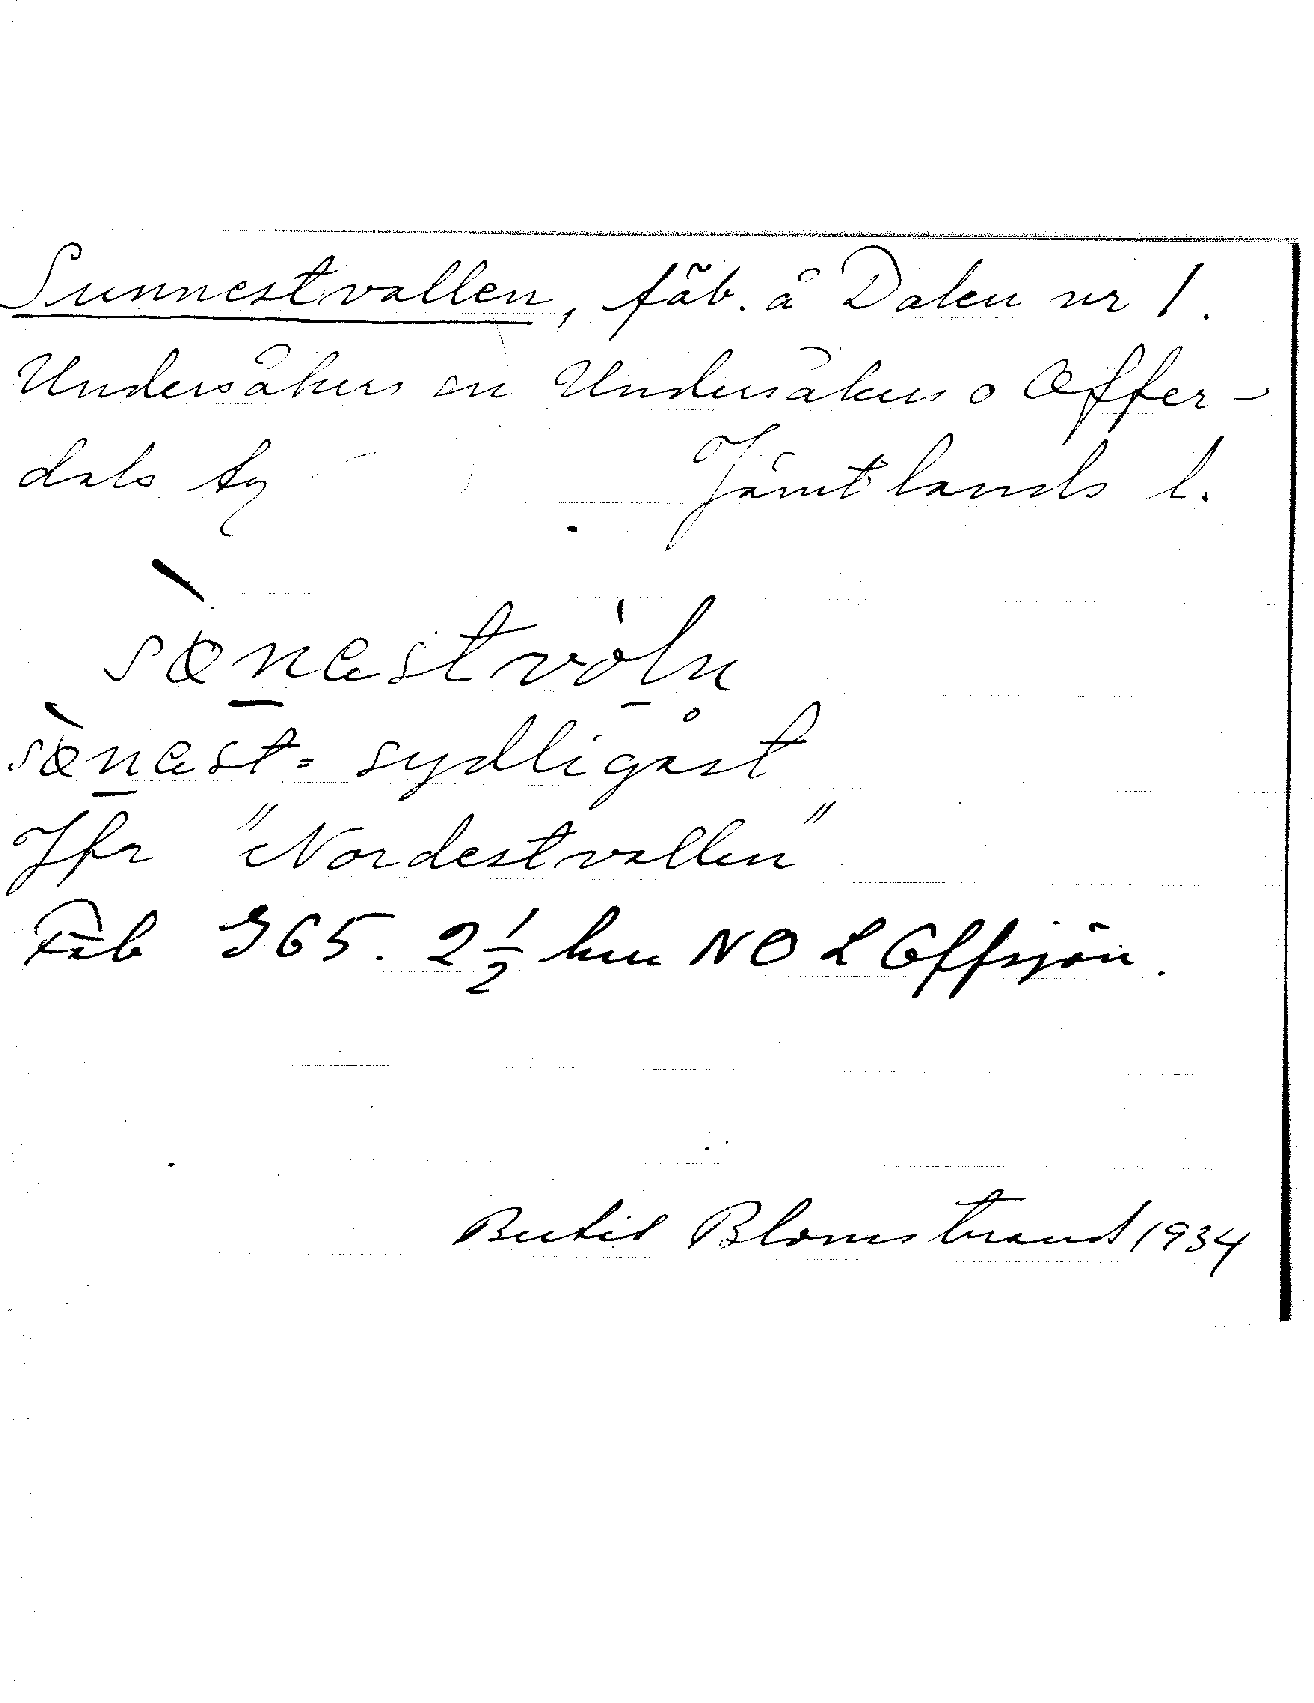 Sunnestvallen, fäb. å Dalen nr 1.
Undersåkers sn Undersåkers o Offer-
dals tg Jämtlands l.
sœ̀nestvòln
sœ̀nest = sydligåst
Jfr "Nordestvallen"
Fäb G65. 2 1/2 km NO L Offsjön.
Bertil Blomstrand 1934